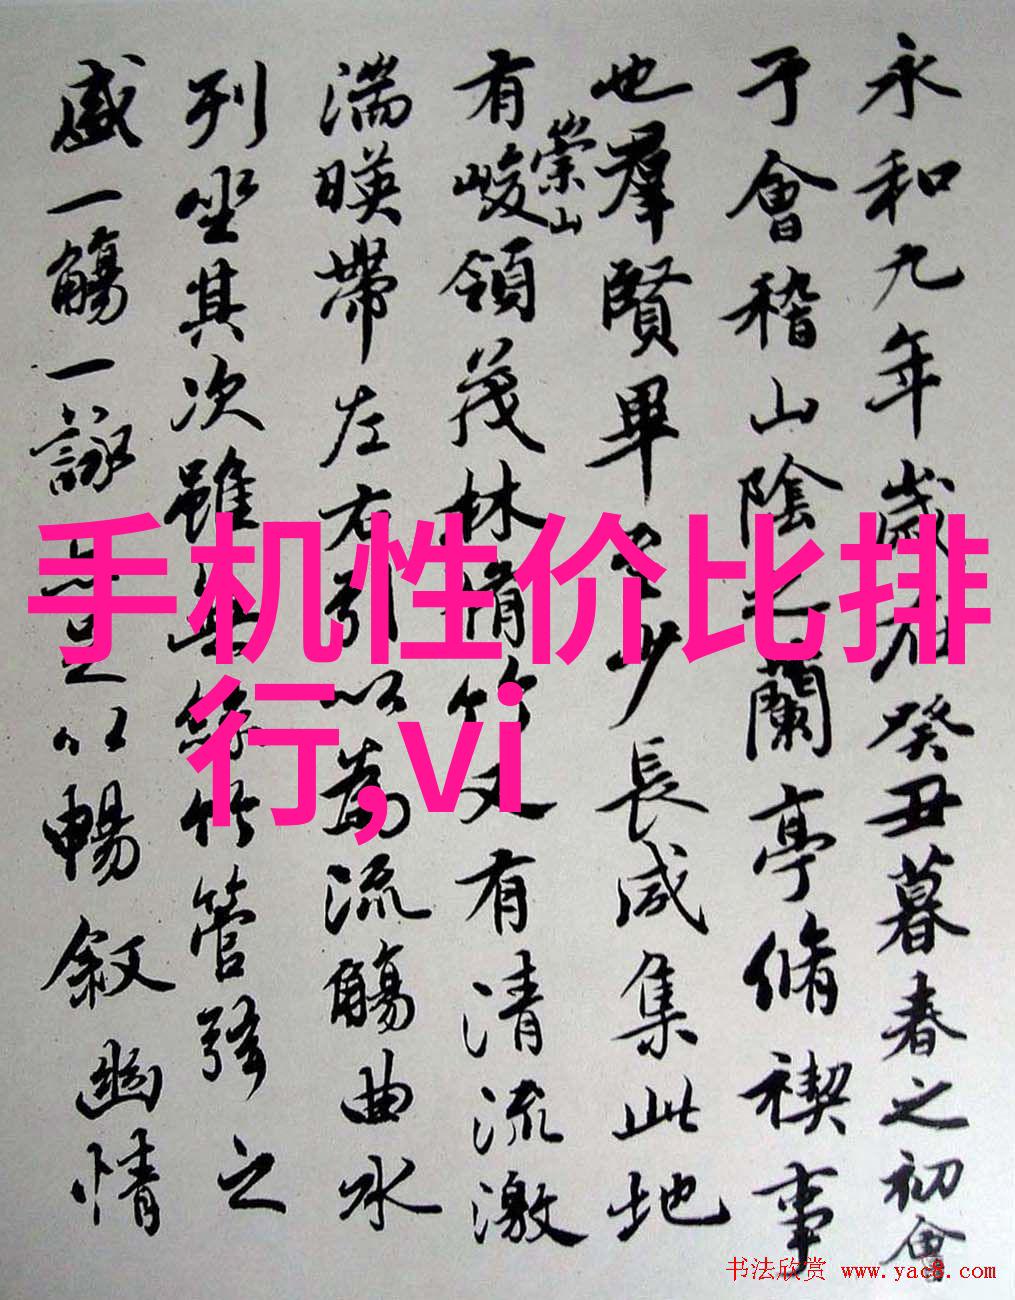 永和九年歲在癸丑暮春之初會
于會稽山陰之蘭亭脩禊事
也羣賢畢至少長咸集此地
有崇山峻領茂林脩竹又有清流激
湍暎帶左右引以為流觴曲水
列坐其次雖無絲竹管弦之
盛一觴一詠亦足以暢敘幽情
手机性价比排
行,vi
书法欣赏 www.yac8.com